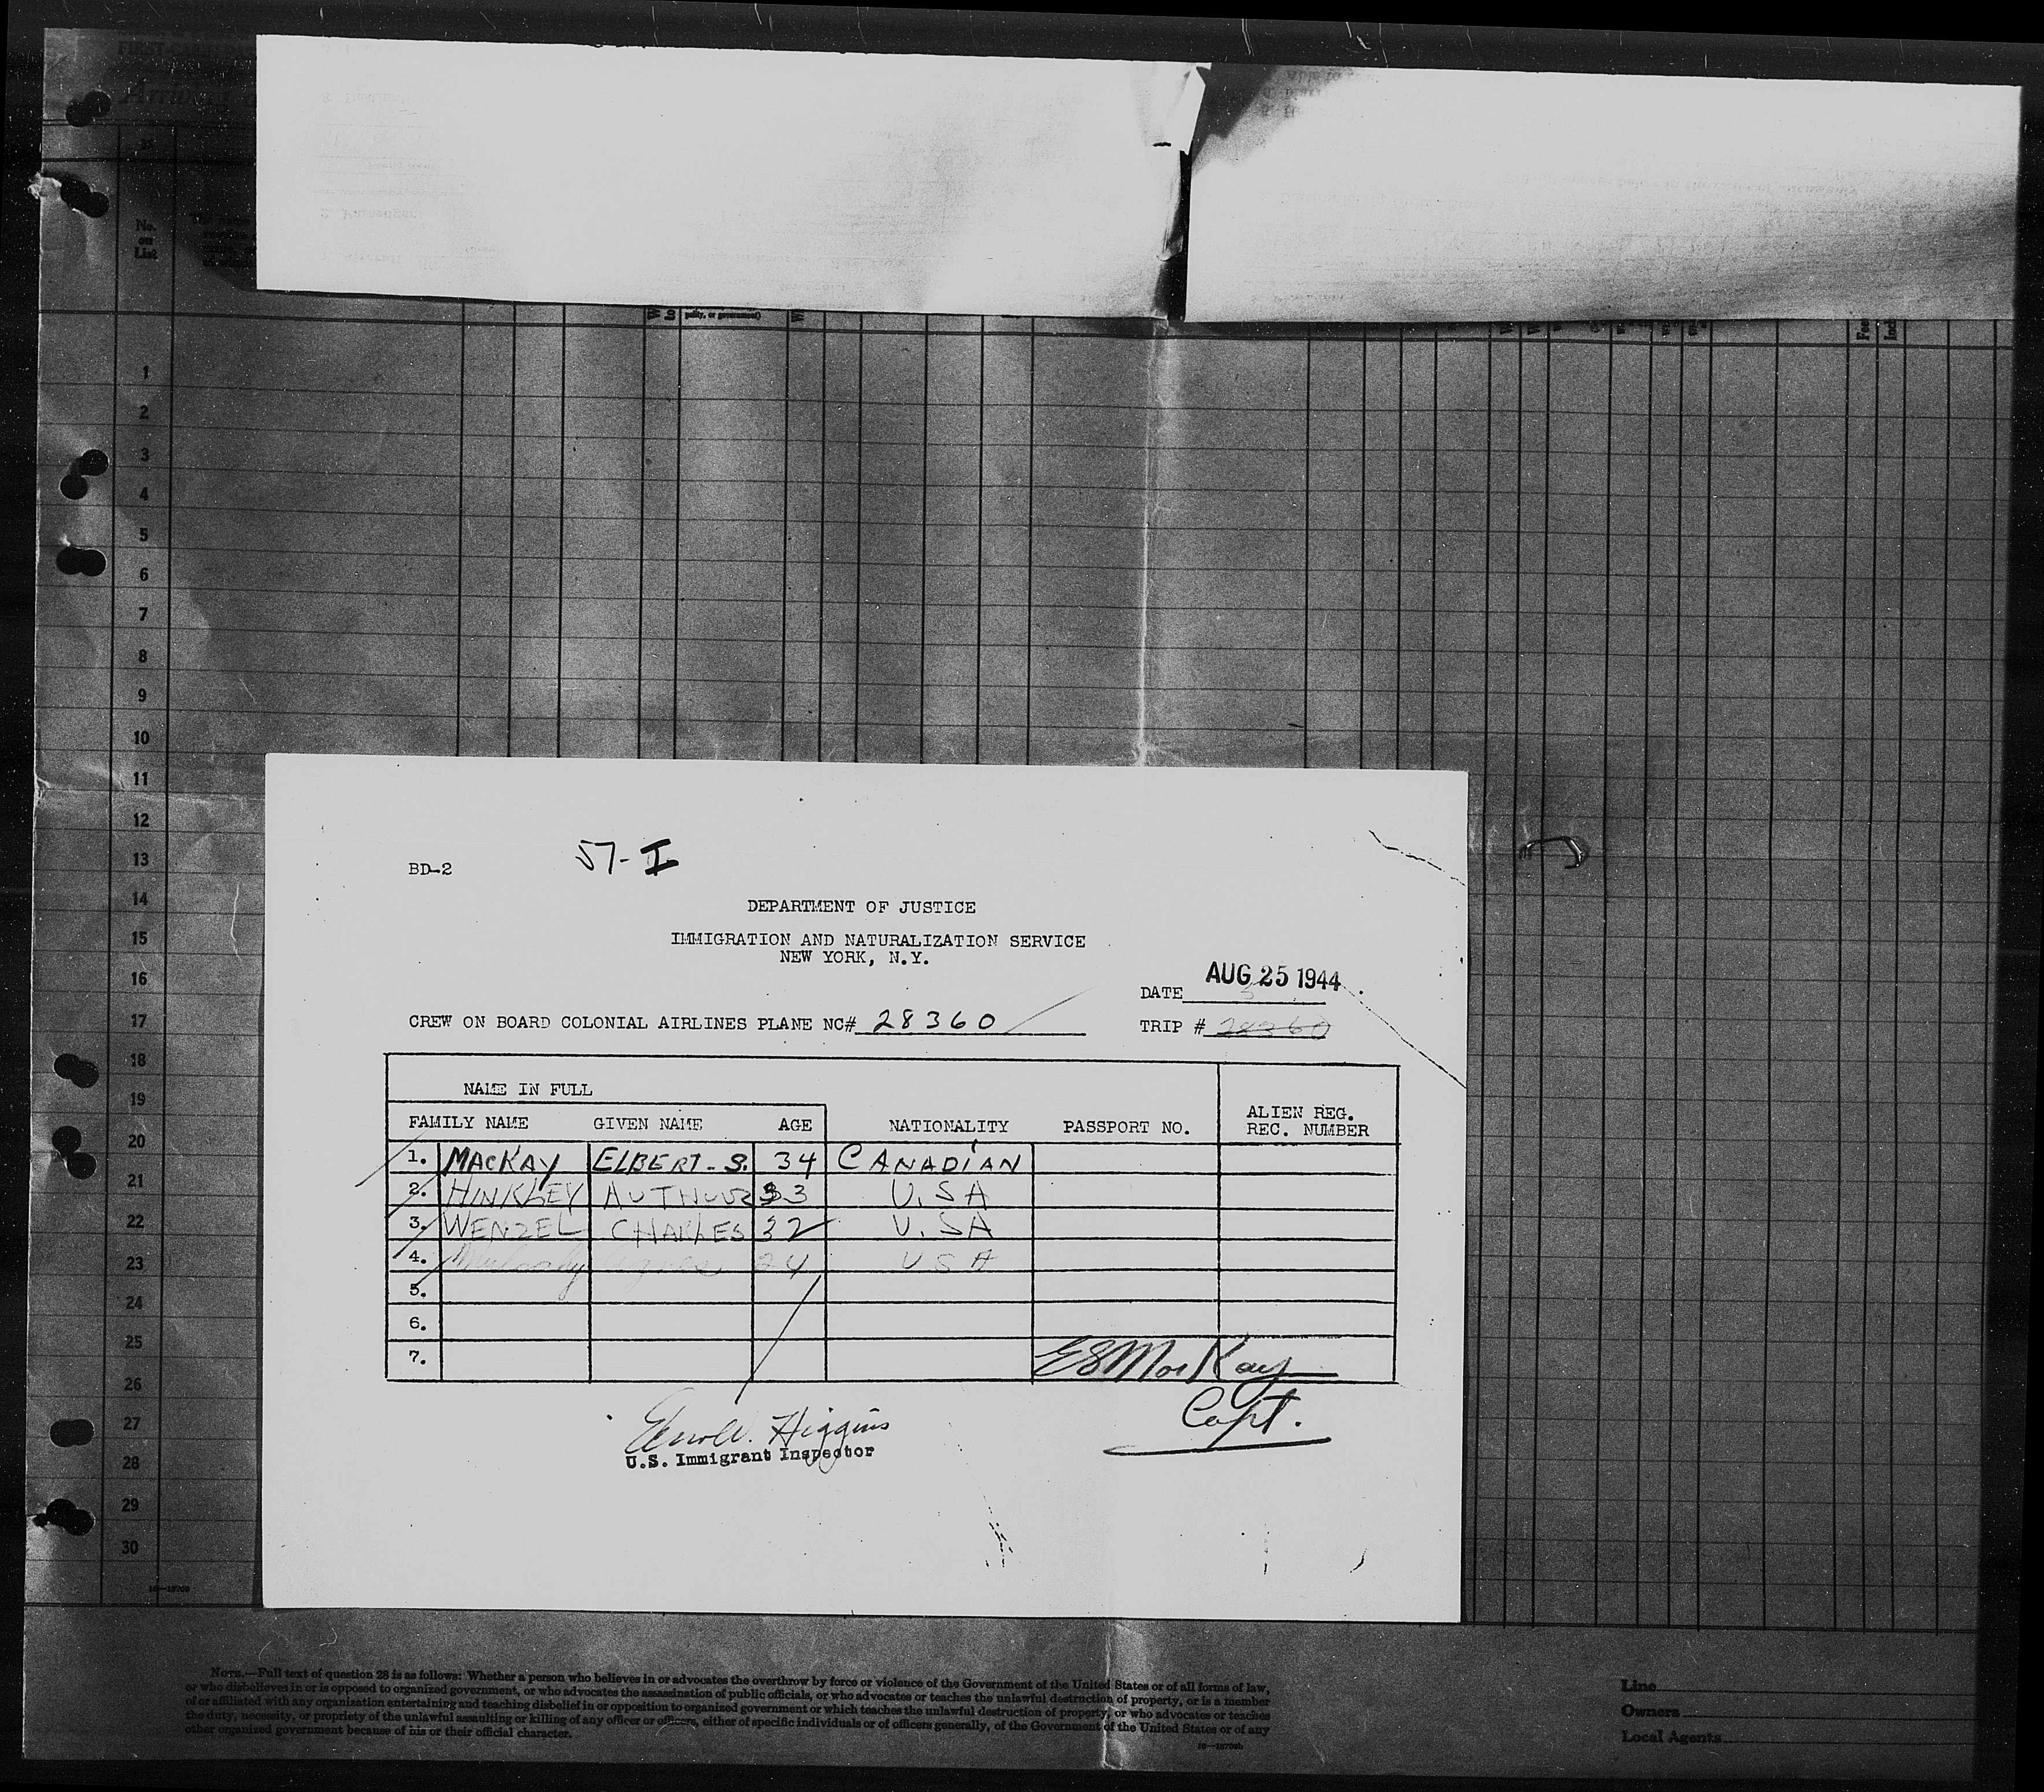 FIRST-CABIN
Arrival
No.
on
List
pality, or government)
1
2
3
4
5
6
7
8
9
10
11
12
13
14
15
16
17
18
19
20
21
22
23
24
25
26
27
28
29
30
BD-2 57-I
DEPARTMENT OF JUSTICE
IMMIGRATION AND NATURALIZATION SERVICE
NEW YORK, N.Y.
DATE AUG 25 1944
CREW ON BOARD COLONIAL AIRLINES PLANE NC# 28360 TRIP # 28360
NAME IN FULL
FAMILY NAME GIVEN NAME AGE NATIONALITY PASSPORT NO. ALIEN REG. REC. NUMBER
1. MACKAY ELBERT-S. 34 CANADIAN
2. HINKLEY AUTHUR 33 U.SA
3. WENZEL CHARLES 32 U.SA
4. 24 USA
5.
6.
7. ESMacKay
Capt.
Higgins
U.S. Immigrant Inspector
NOTE.—Full text of question 28 is as follows: Whether a person who believes in or advocates the overthrow by force or violence of the Government of the United States or of all forms of law,
or who disbelieves in or is opposed to organized government, or who advocates the assassination of public officials, or who advocates or teaches the unlawful destruction of property, or is a member
of or affiliated with any organization entertaining and teaching disbelief in or opposition to organized government or which teaches the unlawful destruction of property, or who advocates or teaches
the duty, necessity, or propriety of the unlawful assaulting or killing of any officer or officers, either of specific individuals or of officers generally, of the Government of the United States or of any
other organized government because of his or their official character.
Line
Owners
Local Agents